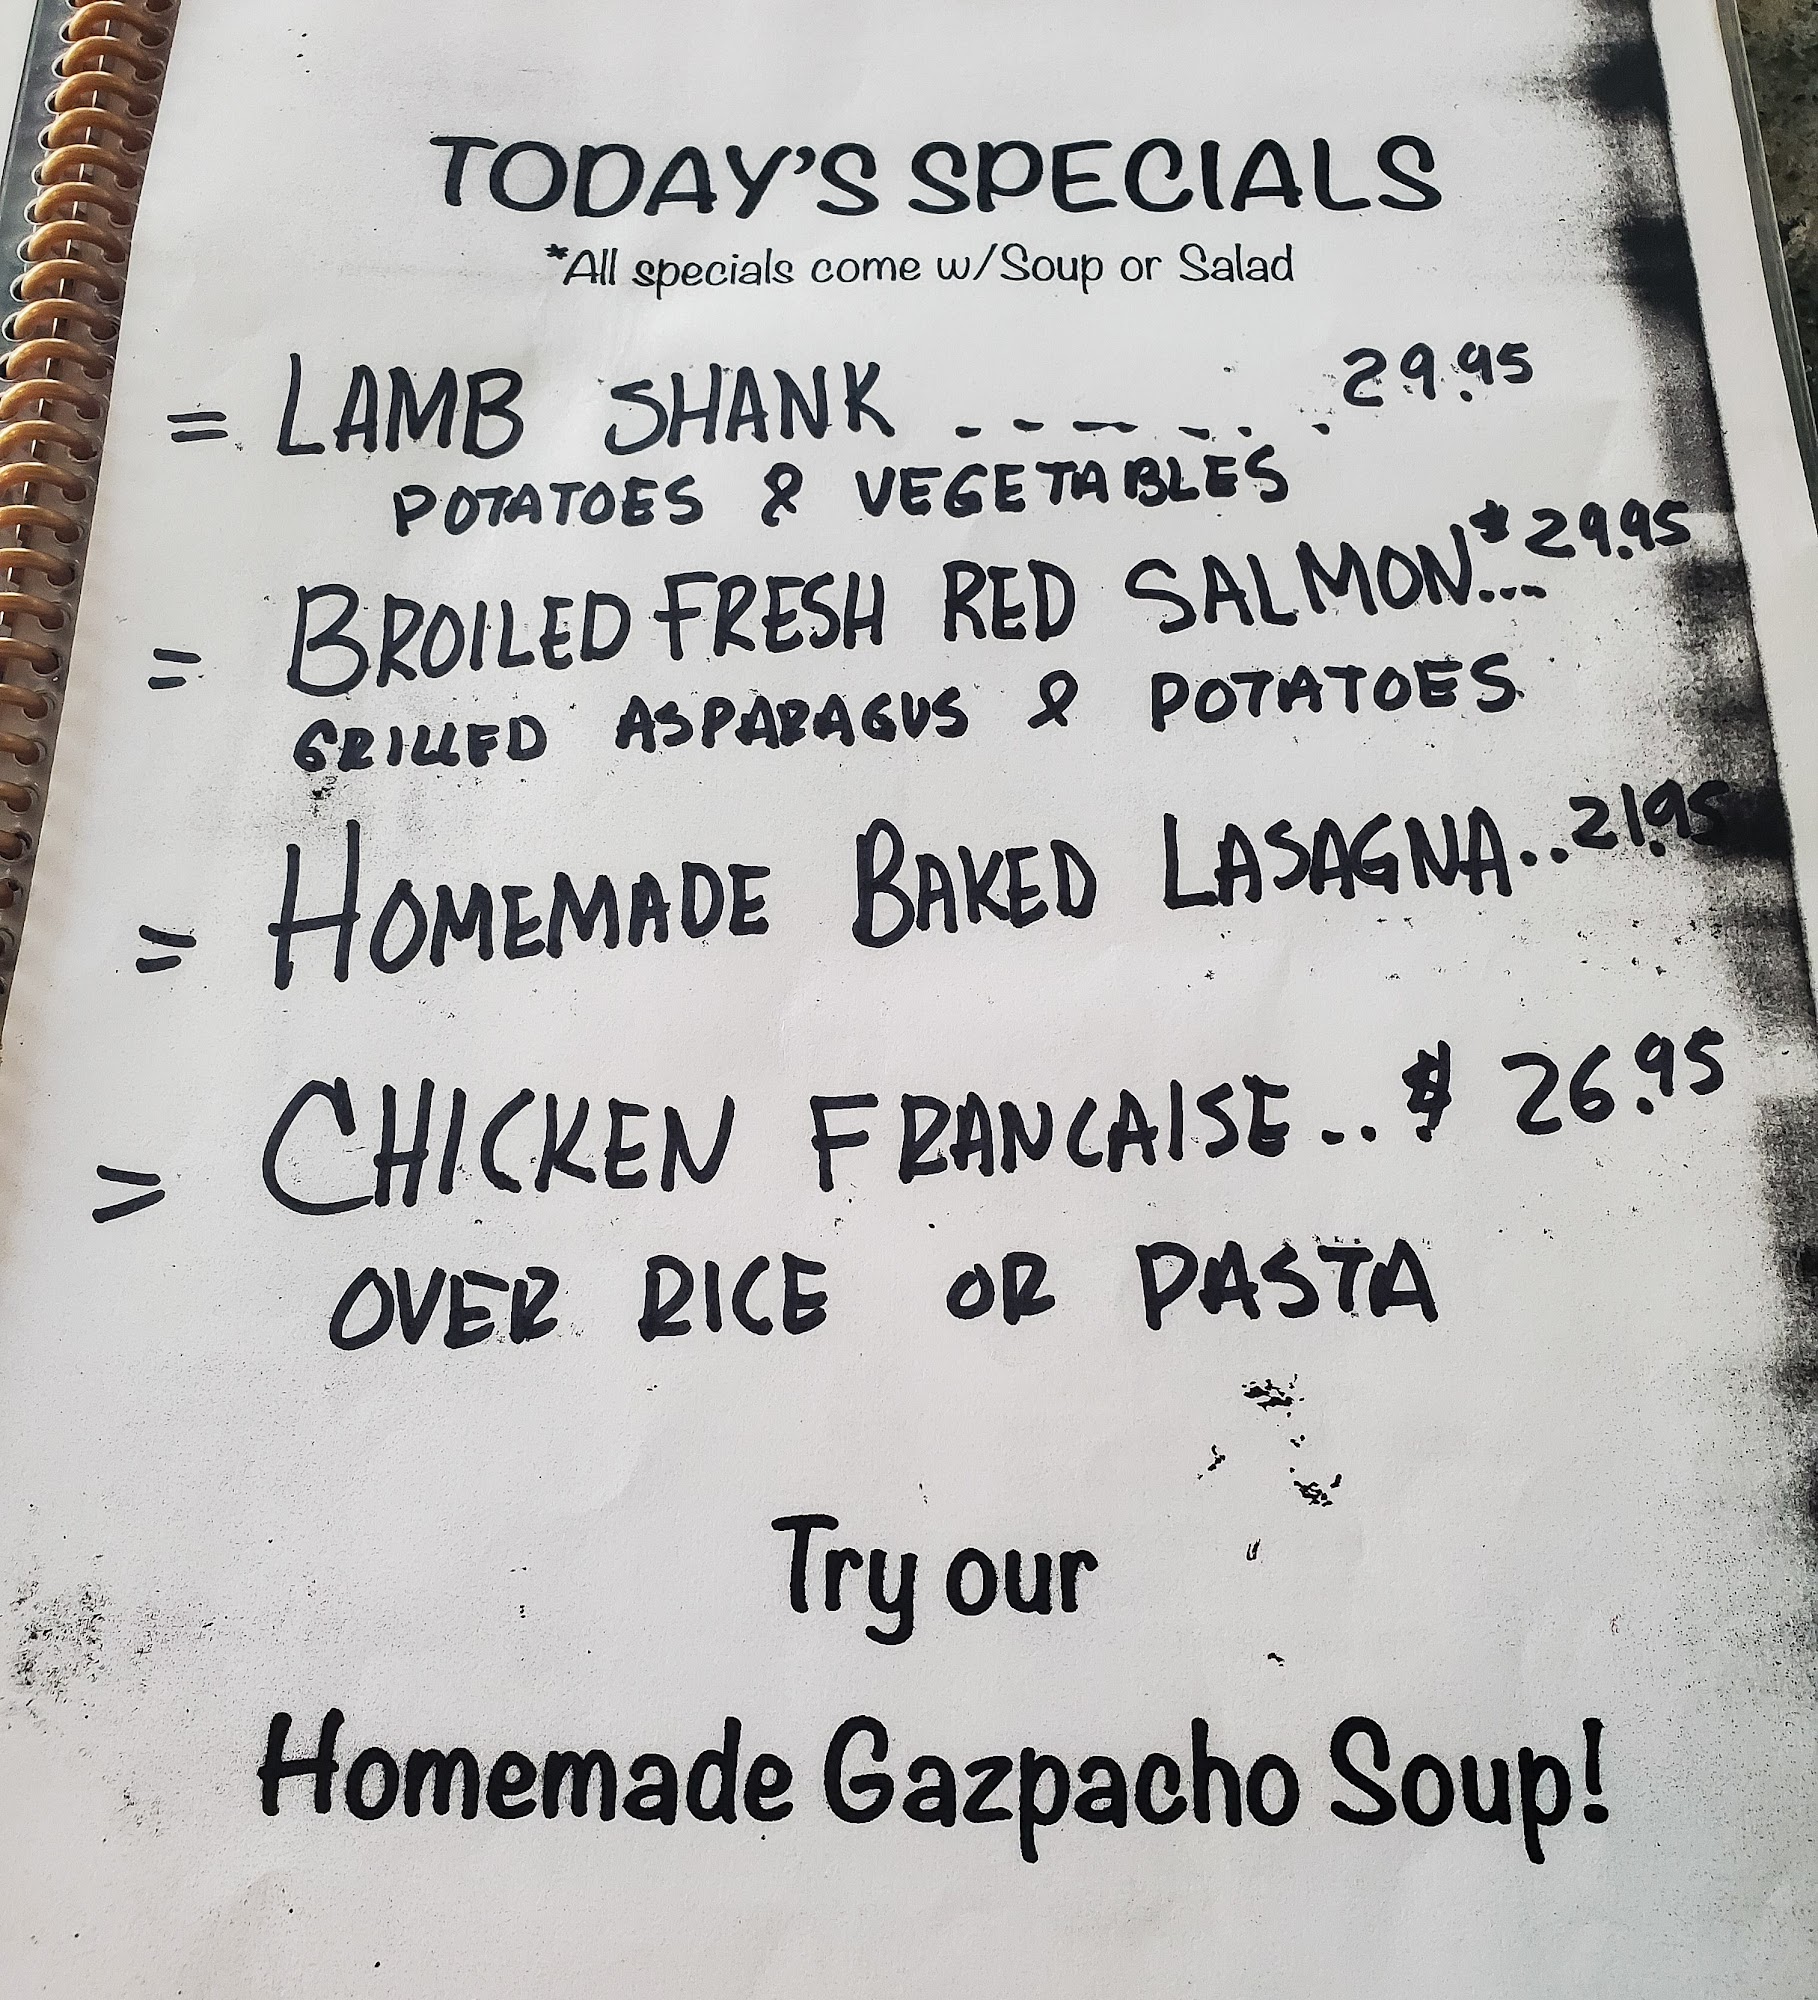 TODAY'S SPECIALS
*All specials come w/Soup or Salad
= LAMB SHANK ------- 29.95
POTATOES & VEGETABLES
= BROILED FRESH RED SALMON... $29.95
GRILLED ASPARAGUS & POTATOES
= HOMEMADE BAKED LASAGNA..21.95
= CHICKEN FRANCAISE... $ 26.95
OVER RICE OR PASTA
Try our
Homemade Gazpacho Soup!